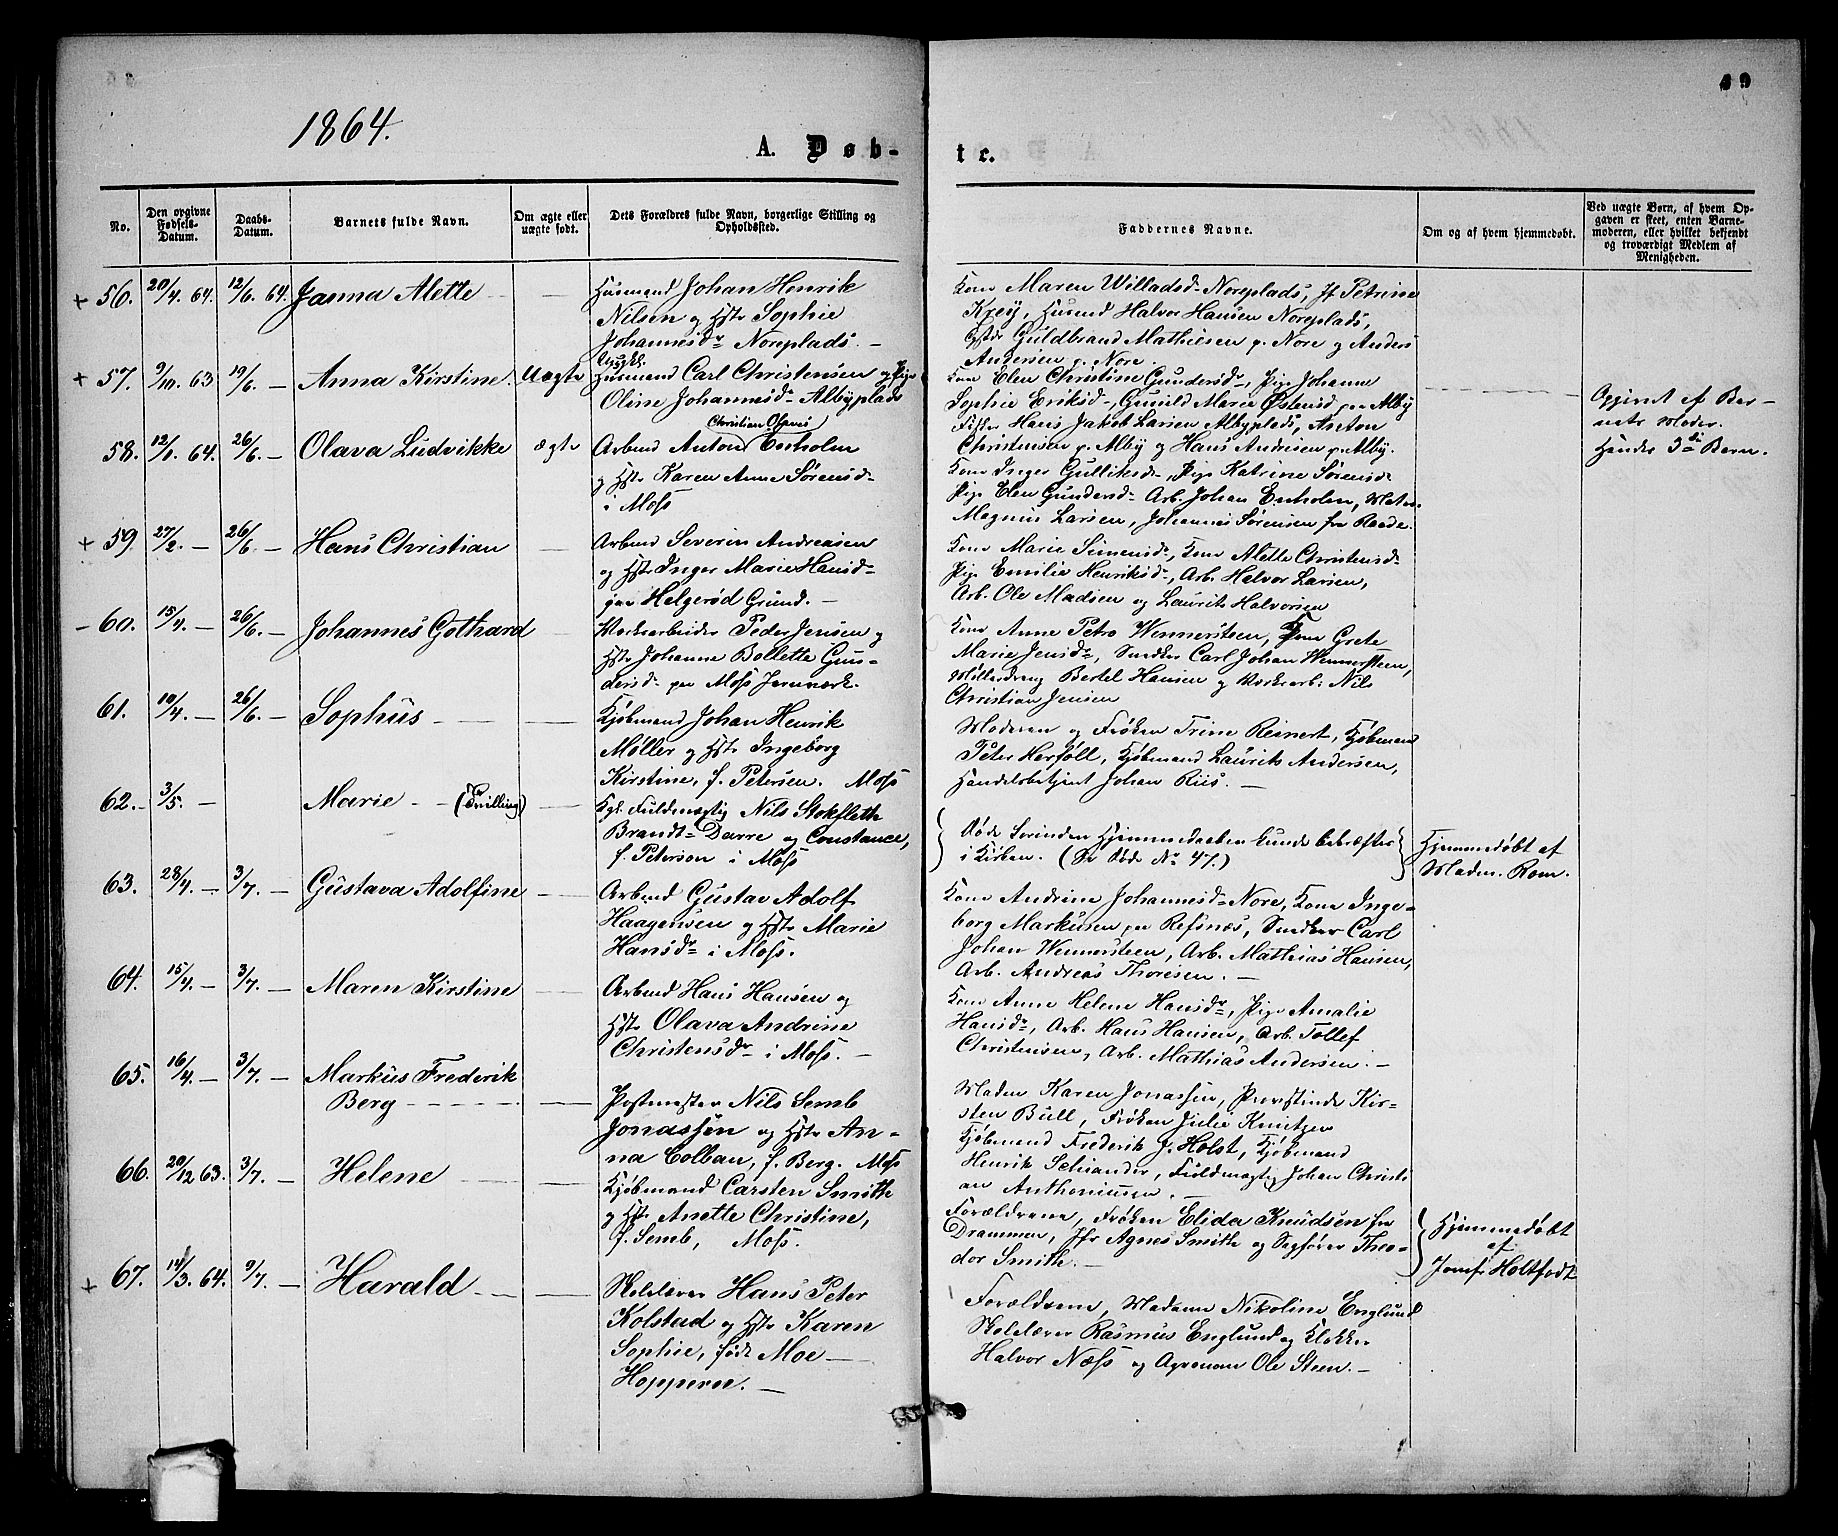 1864.
49
A. Døb-
te.
No.
Den opgivne Fødsels-Datum.
Daabs-Datum.
Barnets fulde Navn.
Om ægte eller uægte født.
Dets Forældres fulde Navn, borgerlige Stilling og Opholdssted.
Faddernes Navne.
Om og af hvem hjemmedøbt.
Ved uægte Børn, af hvem Op-
gaven er skeet, enten Barne-
moderen, eller hvilket bekjendt
og troværdigt Medlem af
Menigheden.
+ 56. 20/4. 64. 12/6. 64. Janna Alette
Husmand Johan Henrik
Nilsen og Hstr Sophie
Johannesdr Noreplads. -
Kone Maren Willadsd- Noreplads, Jf Petrine
Krey, Husmd Halvor Hansen Noreplads,
Guldbrand Mathiesen p. Nore og Anders
Andersen p. Nore.
+ 57. 9/10. 63 19/6. - Anna Kirstine. Uægte
Ungkl.
Husmand Carl Christensen og Pige
Oline Johannesd- Albyplads
Kone Elen Christine Gundersd-, Pige Johanne
Sophie Eriksd-, Gunild Marie Østensd paa Alby
Fisker Hans Jakob Larsen Albyplads, Anton
Christensen p. Alby og Hans Andersen p. Alby.
Opgivet af Bar-
nets Moder.
Hendes 3die Barn.
58. 12/1. 64. 26/6. - Olava Ludvikke ægte
Christian Olsens
Arbmd Anton Enholm
og Hstr Karen Anne Sørensd-
i Moss
Kone Inger Gulliksd-, Pige Katrine Sørensd
Pige Elen Gundersd- Arb. Johan Enholm, Matr.
Magnus Larsen, Johannes Sørensen fra Raade.
+ 59. 27/2. - 26/6. - Hans Christian
Arbmd Severin Andreasen
og Hstr Inger Marie Hansd-
paa Helgerød Grund. -
Kone Marie Simensd-, Kone Alette Christensd-
Pige Emilie Henriksd-, Arb. Halvor Larsen,
Arb. Ole Madsen og Laurits Halvorsen
- 60. 15/4. - 26/6. - Johannes Gothard
Værksarbeider Peder Jensen og
Hstr Johanne Bollette Gun-
dersd- paa Moss Jernværk.
Kone Anne Petro Wennersteen, Kone Grete
Marie Jensdr, Snedker Carl Johan Wennersteen,
Møllerdreng Bertel Hansen og Værksarb: Nils
Christian Jensen
61. 10/4. - 26/6. - Sophus
Kjøbmand Johan Henrik
Møller og Hstr Ingeborg
Kirstine, f. Petersen. Moss
Moderen og Frøken Trine Reinert, Kjøbmand
Peter Herføll, Kjøbmand Laurits Andersen,
Handelsbetjent Johan Riis. -
62. - 3/5. - Marie - (Tvilling)
Kgl. Fuldmægtig Nils Stokfleth
Brandt-Darre og Constance,
f. Peterson i Moss
Døde forinden Hjemmedaaben kunde bekræftes
i Kirken. (Se Døde No 47.)
Hjemmedøbt af
Madm. Rom.
63. 28/4. - 3/7. - Gustava Adolfine
Arbmd Gustav Adolf
Haagensen og Hstr Marie
Hansdr i Moss.
Kone Andrine Johannesd- Nore, Kone Inge-
borg Markusen paa Refsnæs, Snedker Carl
Johan Wennersteen, Arb. Mathias Hansen,
Arb. Andreas Thoresen. -
64. 15/4. - 3/7. - Maren Kirstine
Arbmd Hans Hansen og
Hstr Olava Andrine
Christensdr i Moss. -
Kone Anne Helene Hansdr, Pige Amalie
Hansdr, Arb. Hans Hansen, Arb. Tollef
Christensen, Arb. Mathias Andersen. -
65. 16/4. - 3/7. - Markus Frederik
Berg
Postmester Nils Semb
Jonassen og Hstr An-
na Colban, f. Berg. Moss
Madm Karen Jonassen, Provstinde Kir-
sten Bull, Frøken Julie Knutzen
Kjøbmand Frederik J. Holst, Kjøbmand
Henrik Schiander, Fuldmægtig Johan Christi-
an Anthoniusen. -
66. 20/12 63. 3/7. - Helene
Kjøbmand Carsten Smith
og Hstr Anette Christine,
f. Semb, Moss.
Forældrene, Frøken Elida Knudsen fra
Drammen, Jfr Agnes Smith og Sagfører Theo-
dor Smith. -
Hjemmedøbt
af
Jomfr Holtfodt
+ 67. 14/3. 64. 9/7. - Harald
Skolelærer Hans Peter
Kolstad og Hstr Karen
Sophie, født Moe -
Hoppern. -
Forældrene, Madame Nikoline Englund
Skolelærer Rasmus Englund og Klokker
Halvor Næss og Agronom Ole Steen. -